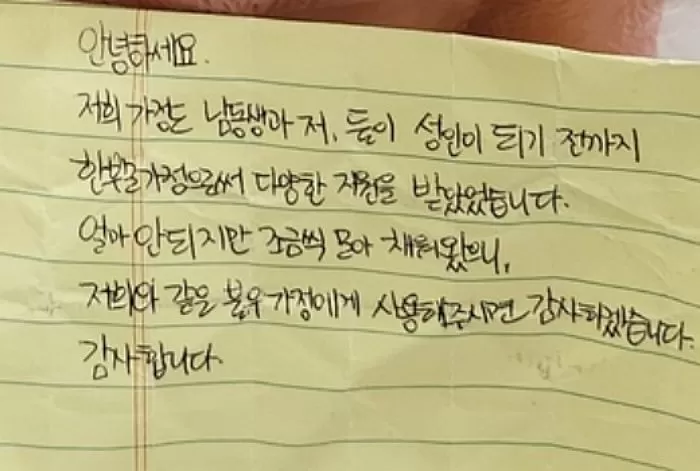 안녕하세요.
저희 가정는 남동생과 저, 둘이 성인이 되기 전까지
한부모가정으로써 다양한 지원을 받았었습니다.
얼마 안되지만 조금씩 모아 채워왔으니,
저희와 같은 불우가정에게 사용해주시면 감사하겠습니다.
감사합니다.